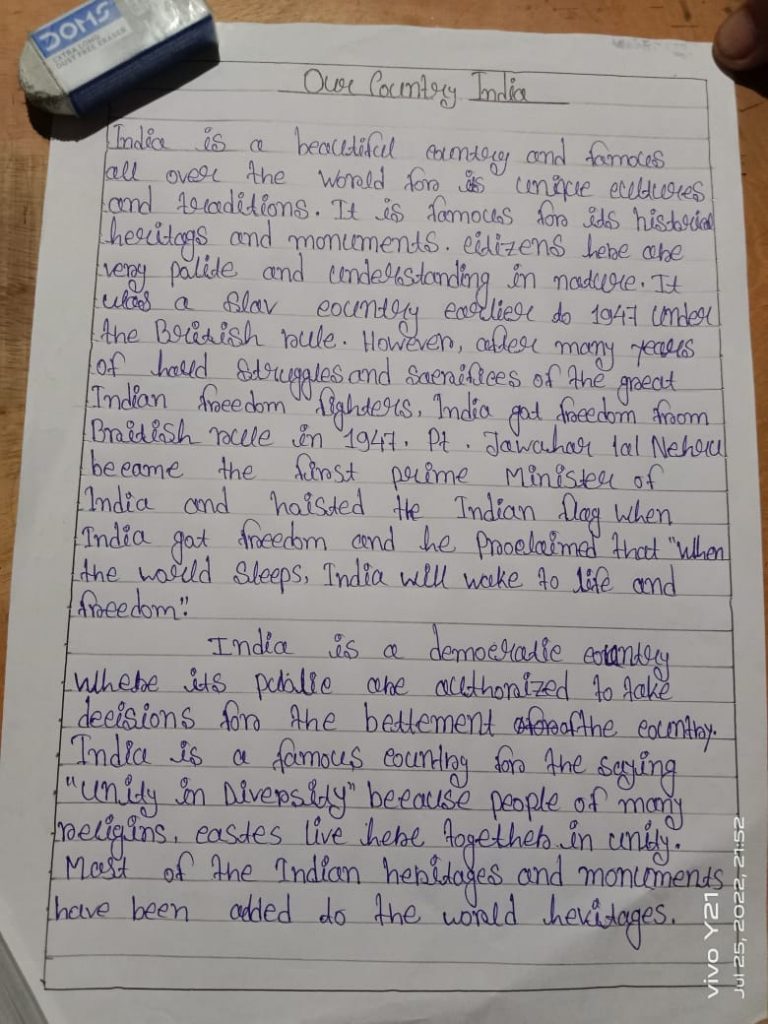 DOMS
EXTRA LONG
DUST FREE ERASER
Our Country India
India is a beautiful country and famous
all over the world for is unique cultures
and traditions. It is famous for its historical
heritags and monuments. citizens here are
very polite and understanding in nature. It
was a slav country earlier to 1947 under
the British rule. However, after many years
of hard struggles and sacrifices of the great
Indian freedom fighters, India got freedom from
Braitish rule in 1947. Pt. Jawahar lal Nehru
became the first prime Minister of
India and haisted the Indian flag when
India got freedom and he proclaimed that "when
the world sleeps, India will wake to life and
freedom".
India is a democratic country
where its public are authorized to take
decisions for the bettement of the country.
India is a famous country for the saying
"Unity in Diversity" because people of many
religins, castes live here together in unity.
Most of the Indian heritages and monuments
have been added to the world heritages.
vivo Y21
Jul 25, 2022, 21:52